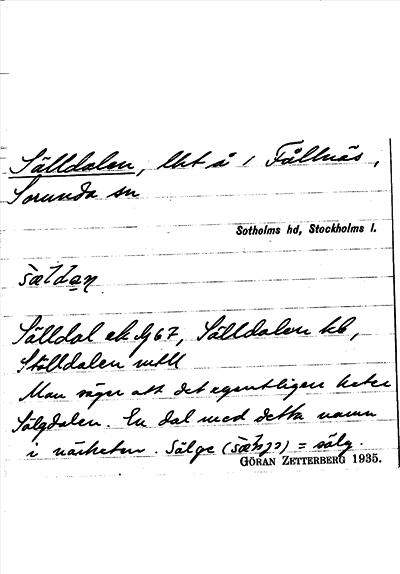 Sälldalen, lht å 1 Fållnäs,
Sorunda sn
Sotholms hd, Stockholms l.
Sälldal ek 67, Sälldalen kb,
Ställdalen mtll
Man säger att det egentligen heter
Sälgdalen. En dal med detta namn
i närheten. Sälge = sälg.
GÖRAN ZETTERBERG 1935.